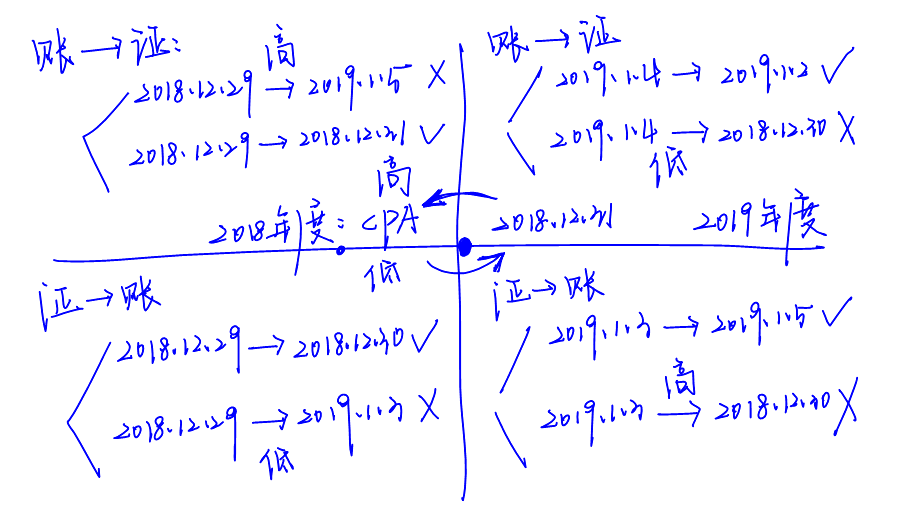 账→证：
高
2018.12.29→2019.1.5 ×
2018.12.29→2018.12.31 ✓
账→证
2019.1.4→2019.1.2 ✓
2019.1.4→2018.12.30 ×
低
高
2018年度：CPA
2018.12.31
2019年度
低
证→账
2018.12.29→2018.12.30 ✓
2018.12.29→2019.1.3 ×
低
证→账
2019.1.3→2019.1.5 ✓
高
2019.1.3→2018.12.30 ×